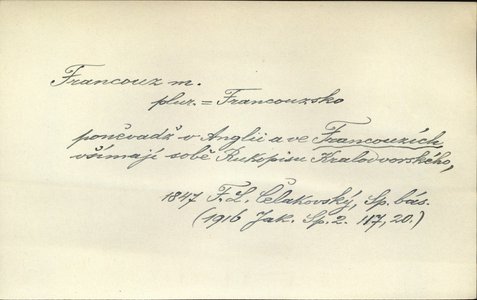 Francouz m.
plur. = Francouzsko
poněvadž v Anglii a ve Francouzích
všímají sobě Rukopisu Kralodvorského,
1847 F. L. Čelakovský, Sp. bás.
(1916 Jak. Sp. 2. 117, 20.)